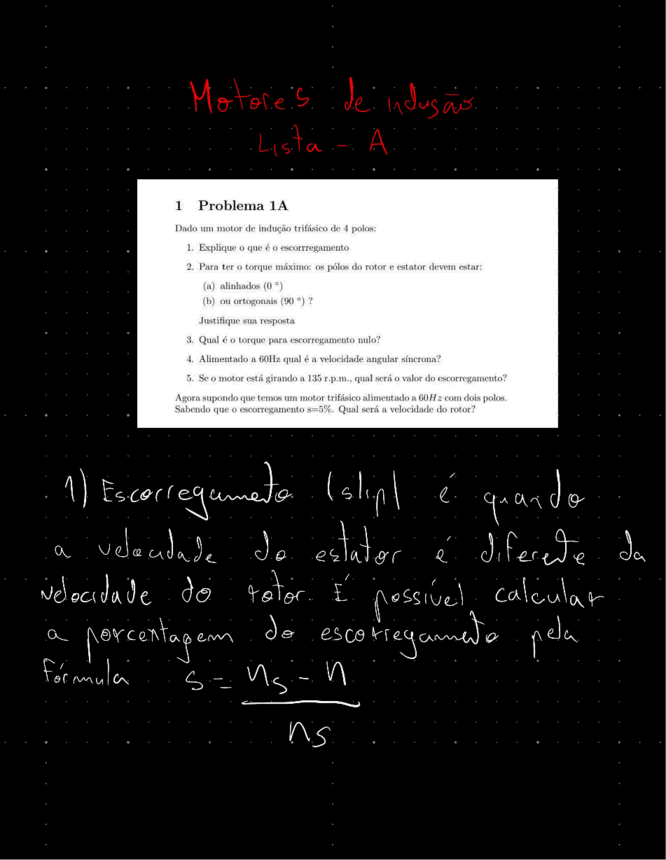 Motores de indução
Lista - A
1 Problema 1A
Dado um motor de indução trifásico de 4 polos:
1. Explique o que é o escorrregamento
2. Para ter o torque máximo: os pólos do rotor e estator devem estar:
(a) alinhados (0 °)
(b) ou ortogonais (90 °) ?
Justifique sua resposta
3. Qual é o torque para escorregamento nulo?
4. Alimentado a 60Hz qual é a velocidade angular síncrona?
5. Se o motor está girando a 135 r.p.m., qual será o valor do escorregamento?
Agora supondo que temos um motor trifásico alimentado a 60Hz com dois polos.
Sabendo que o escorregamento s=5%. Qual será a velocidade do rotor?
1) Escorregamento (slip) é quando
a velocidade do estator é diferente da
velocidade do rotor. É possível calcular
a porcentagem do escorregamento pela
fórmula s = ns - n
ns